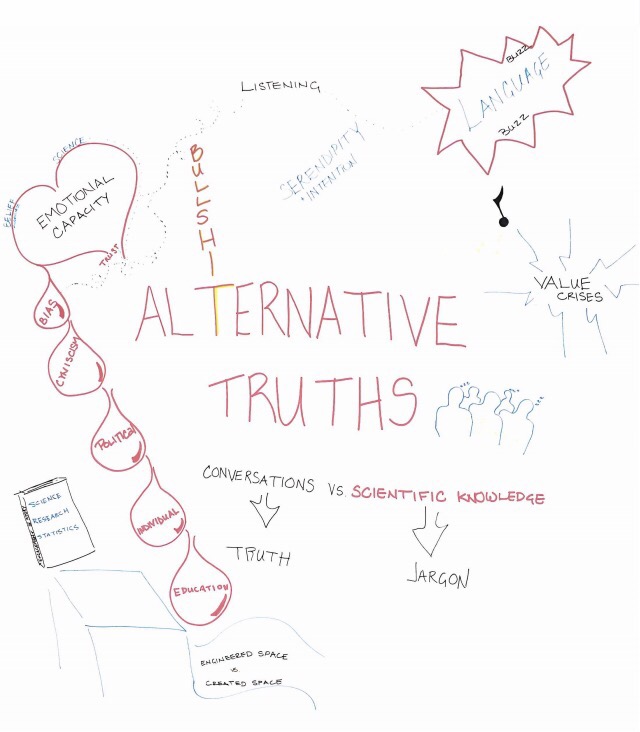 LISTENING
BUZZ
LANGUAGE
BUZZ
SCIENCE
BELIEF
EMOTIONAL
CAPACITY
TRUST
BULLSHIT
SERENDIPITY
INTENTION
VALUE
CRISES
ALTERNATIVE
TRUTHS
BIAS
CYNISCISM
POLITICAL
INDIVIDUAL
EDUCATION
CONVERSATIONS VS. SCIENTIFIC KNOWLEDGE
TRUTH
JARGON
SCIENCE
RESEARCH
STATISTICS
ENGINEERED SPACE
VS
CREATED SPACE